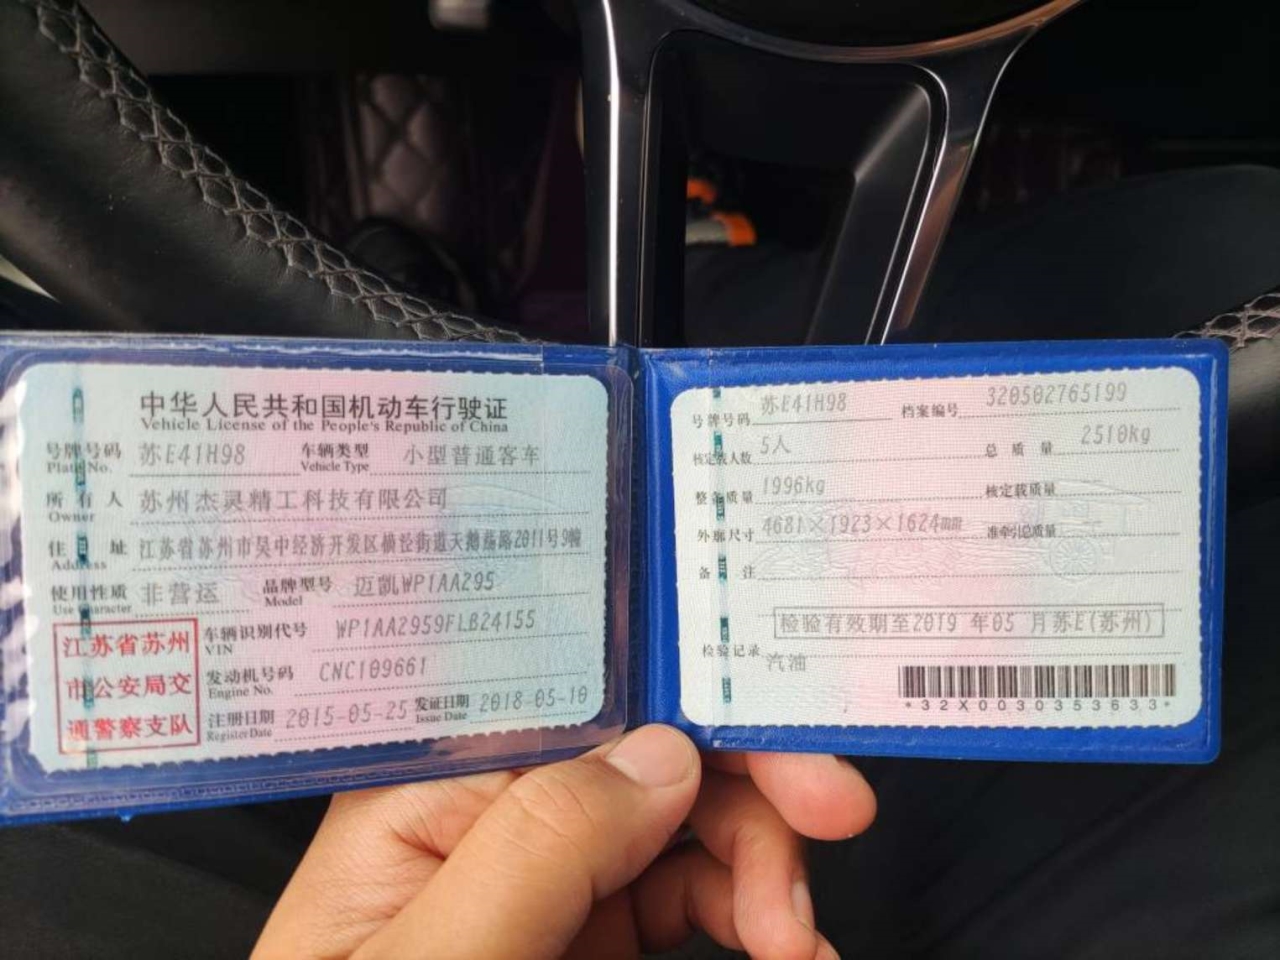 中华人民共和国机动车行驶证
Vehicle License of the People's Republic of China
号牌号码 苏E41H98 车辆类型 小型普通客车
Plate No. Vehicle Type
所有人 苏州杰灵精工科技有限公司
Owner
住址 江苏省苏州市吴中经济开发区横泾街道天鹅荡路2011号9幢
Address
使用性质 非营运 品牌型号 迈凯WP1AA295
Use Character Model
江苏省苏州
市公安局交
通警察支队
车辆识别代号 WP1AA2959FLB24155
VIN
发动机号码 CNC109661
Engine No.
注册日期 2015-05-25 发证日期 2018-05-10
Register Date Issue Date
号牌号码 苏E41H98 档案编号 320502765199
核定载人数 5人 总质量 2510kg
整备质量 1996kg 核定载质量
外廓尺寸 4681×1923×1624mm 准牵引总质量
备注
检验有效期至2019年05月苏E(苏州)
检验记录 汽油
*32X0030353633*